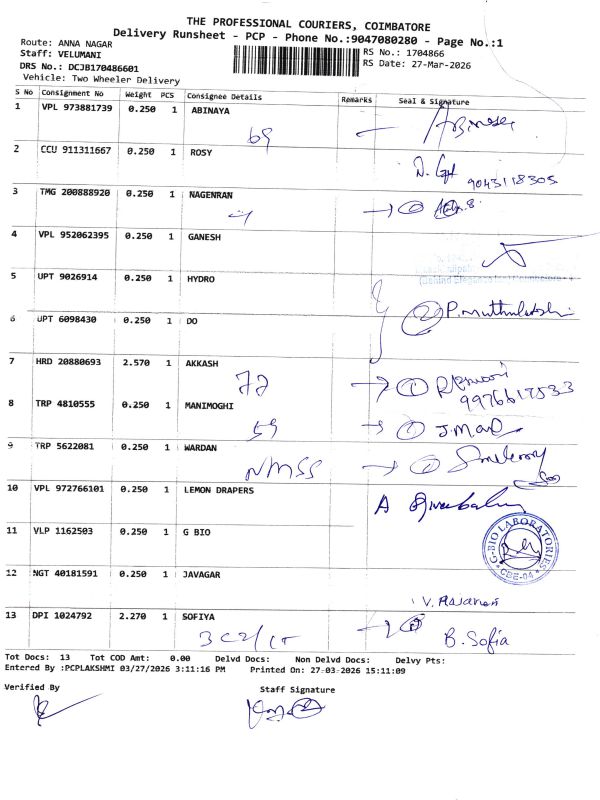 THE PROFESSIONAL COURIERS, COIMBATORE
Delivery Runsheet - PCP - Phone No.:9047080280 - Page No.:1
Route: ANNA NAGAR
Staff: VELUMANI
RS No.: 1704866
DRS No.: DCJB170486601
RS Date: 27-Mar-2026
Vehicle: Two Wheeler Delivery
S No Consignment No Weight PCS Consignee Details Remarks Seal & Signature
1 VPL 973881739 0.250 1 ABINAYA
69
2 CCU 911311667 0.250 1 ROSY
9043118305
3 TMG 200888920 0.250 1 NAGENRAN
4 VPL 952062395 0.250 1 GANESH
5 UPT 9026914 0.250 1 HYDRO
P.Muthulakshmi
6 UPT 6098430 0.250 1 DO
7 HRD 20880693 2.570 1 AKKASH
72
8 TRP 4810555 0.250 1 MANIMOGHI
59
9 TRP 5622081 0.250 1 WARDAN
NMSS
10 VPL 972766101 0.250 1 LEMON DRAPERS
11 VLP 1162503 0.250 1 G BIO
G-BIO LABORATORIES
CBE-04
12 NGT 40181591 0.250 1 JAVAGAR
13 DPI 1024792 2.270 1 SOFIYA
B. Sofia
Tot Docs: 13 Tot COD Amt: 0.00 Delvd Docs: Non Delvd Docs: Delvy Pts:
Entered By :PCPLAKSHMI 03/27/2026 3:11:16 PM Printed On: 27-03-2026 15:11:09
Verified By
Staff Signature